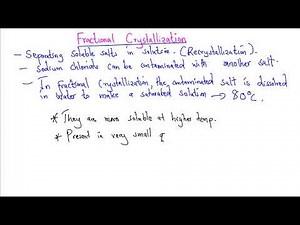 Fractional Crystallization
- Separating soluble salts in solution. (Recrystallization).
- Sodium chloride can be contaminated with another salt.
- In fractional Crystallization, the contaminated salt is dissolved
in water to make a saturated solution → 80°C.
* They are more soluble at higher temp.
* Present in very small